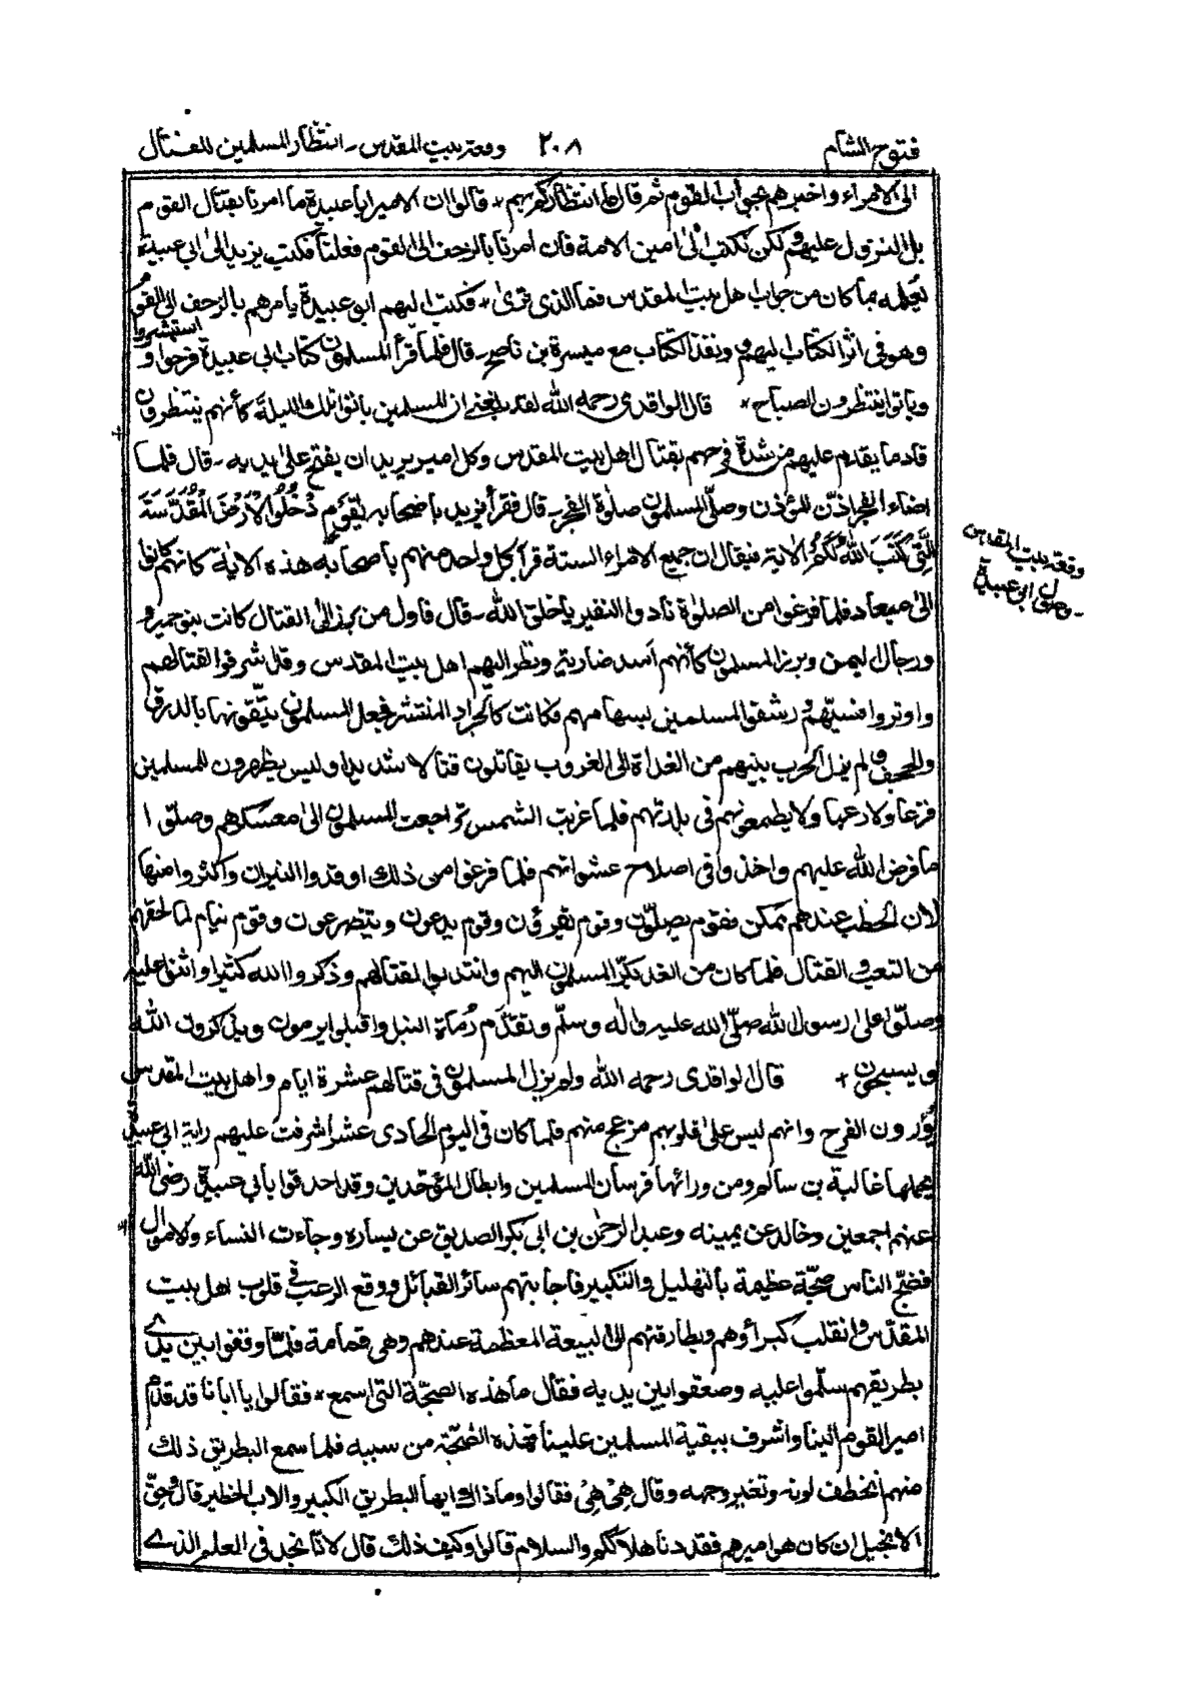 فتوح الشام ٢٠٨ وقعة بيت المقدس - انتظار المسلمين للقتال
الى الامراء واخبرهم بجواب القوم ثم قال ما انتظاركم بهم * قالوا ان الامير ابا عبيدة ما امرنا بقتال القوم
بل النزول عليهم ولكن نكتب الى امين الامة فان امرنا بالزحف الى القوم فعلنا فكتب يزيد الى ابى عبيدة
يعلمه بما كان من جواب اهل بيت المقدس فما الذى ترى * فكتب اليهم ابو عبيدة يامرهم بالزحف الى القوم
وهو فى اثر الكتاب اليهم ونفذ الكتاب مع ميسرة بن ناصح - قال فلما قرأ المسلمون كتاب ابى عبيدة فرحوا و استبشروا
وباتوا ينتظرون الصباح * قال الواقدى رحمه الله لقد بلغنى ان المسلمين باتوا تلك الليلة كأنهم ينتظرون
قادما يقدم عليهم من شدة فرحهم بقتال اهل بيت المقدس وكل امير يريد ان يفتح على يديه - قال فلما
اضاء الفجر اذّن المؤذن وصلّى المسلمون صلوة الفجر - قال فقرأ يزيد باصحابه يٰقَوْمِ ادْخُلُوا الْاَرْضَ الْمُقَدَّسَةَ
الَّتِىْ كَتَبَ اللّٰهُ لَكُمْ الاٰية فيقال ان جميع الامراء الستة قرأ كل واحد منهم باصحابه هذه الاٰية كانهم كانوا
الى ميعاد فلما فرغوا من الصلوٰة نادوا النفير يا خلق الله - قال فاول من برز الى القتال كانت بنو حمير و
ورجال اليمن وبرز المسلمون كأنهم اُسد ضارية ونظر اليهم اهل بيت المقدس وقد شرفوا لقتالهم
واوتروا قسيّهم و رشقوا المسلمين بسهامهم فكانت كالجراد المنتشر فجعل المسلمون يتّقونها بالدرق
والحجف ولم يزل الحرب بينهم من الغداة الى الغروب يقاتلون قتالا شديدا وليس يظهرون للمسلمين
فزعا ولا رعبا ولا يطمعونهم فى بلدتهم فلما غربت الشمس تراجعت المسلمون الى معسكرهم وصلوا
ما فرض الله عليهم واخذوا فى اصلاح عشواتهم فلما فرغوا من ذلك اوقدوا النيران واكثروا منها
لان الحطب عندهم ممكن فقوم يصلّون وقوم يقرؤن وقوم يدعون ويتضرعون وقوم نيام لما لحقهم
من التعب والقتال فلما كان من الغد بكرّ المسلمون اليهم وانتدبوا لقتالهم وذكروا الله كثيرا واثنوا عليه
وصلّوا على رسول الله صلّى الله عليه واٰله وسلّم وتقدّم رُماة النبل واقبلوا يرمون ويذكرون الله
ويسبحون * قال الواقدى رحمه الله ولم يزل المسلمون فى قتالهم عشرة ايام واهل بيت المقدس
يُؤرون الفرح وانهم ليس على قلوبهم مزعج منهم فلما كان فى اليوم الحادى عشر اشرفت عليهم راية ابى عبيدة
يحملها غالبة بن سالم ومن ورائها فرسان المسلمين وابطال المؤحّدين وقد احدقوا بابى عبيدة رضى الله
عنهم اجمعين وخالد عن يمينه وعبد الرحمٰن بن ابى بكر الصديق عن يساره وجاءت النساء والاموال
فضجّ الناس ضجّة عظيمة بالتهليل والتكبير فاجابتهم سائر القبائل ووقع الرعب فى قلوب اهل بيت
المقدس وانقلب كبراؤهم وبطارقتهم الى البيعة المعظمة عندهم وهى قمامة فلمّا وقفوا بين يدى
بطريقهم سلّموا عليه وصعقوا بين يديه فقال ما هذه الضجّة التى اسمع * فقالوا يا ابانا قد قدم
امير القوم الينا واشرف ببقية المسلمين علينا فهذه الضجّة من سببه فلما سمع البطريق ذلك
منهم انخطف لونه وتغير وجهه وقال هِىْ هِىْ فقالوا وما ذاك ايها البطريق الكبير والاب الخطير قال وحقّ
الانجيل ان كان هو اميرهم فقد دنا هلاككم والسلام قالوا وكيف ذلك قال لانا نجد فى العلم الذى
وقعة بيت المقدس
وصول ابى عبيدة